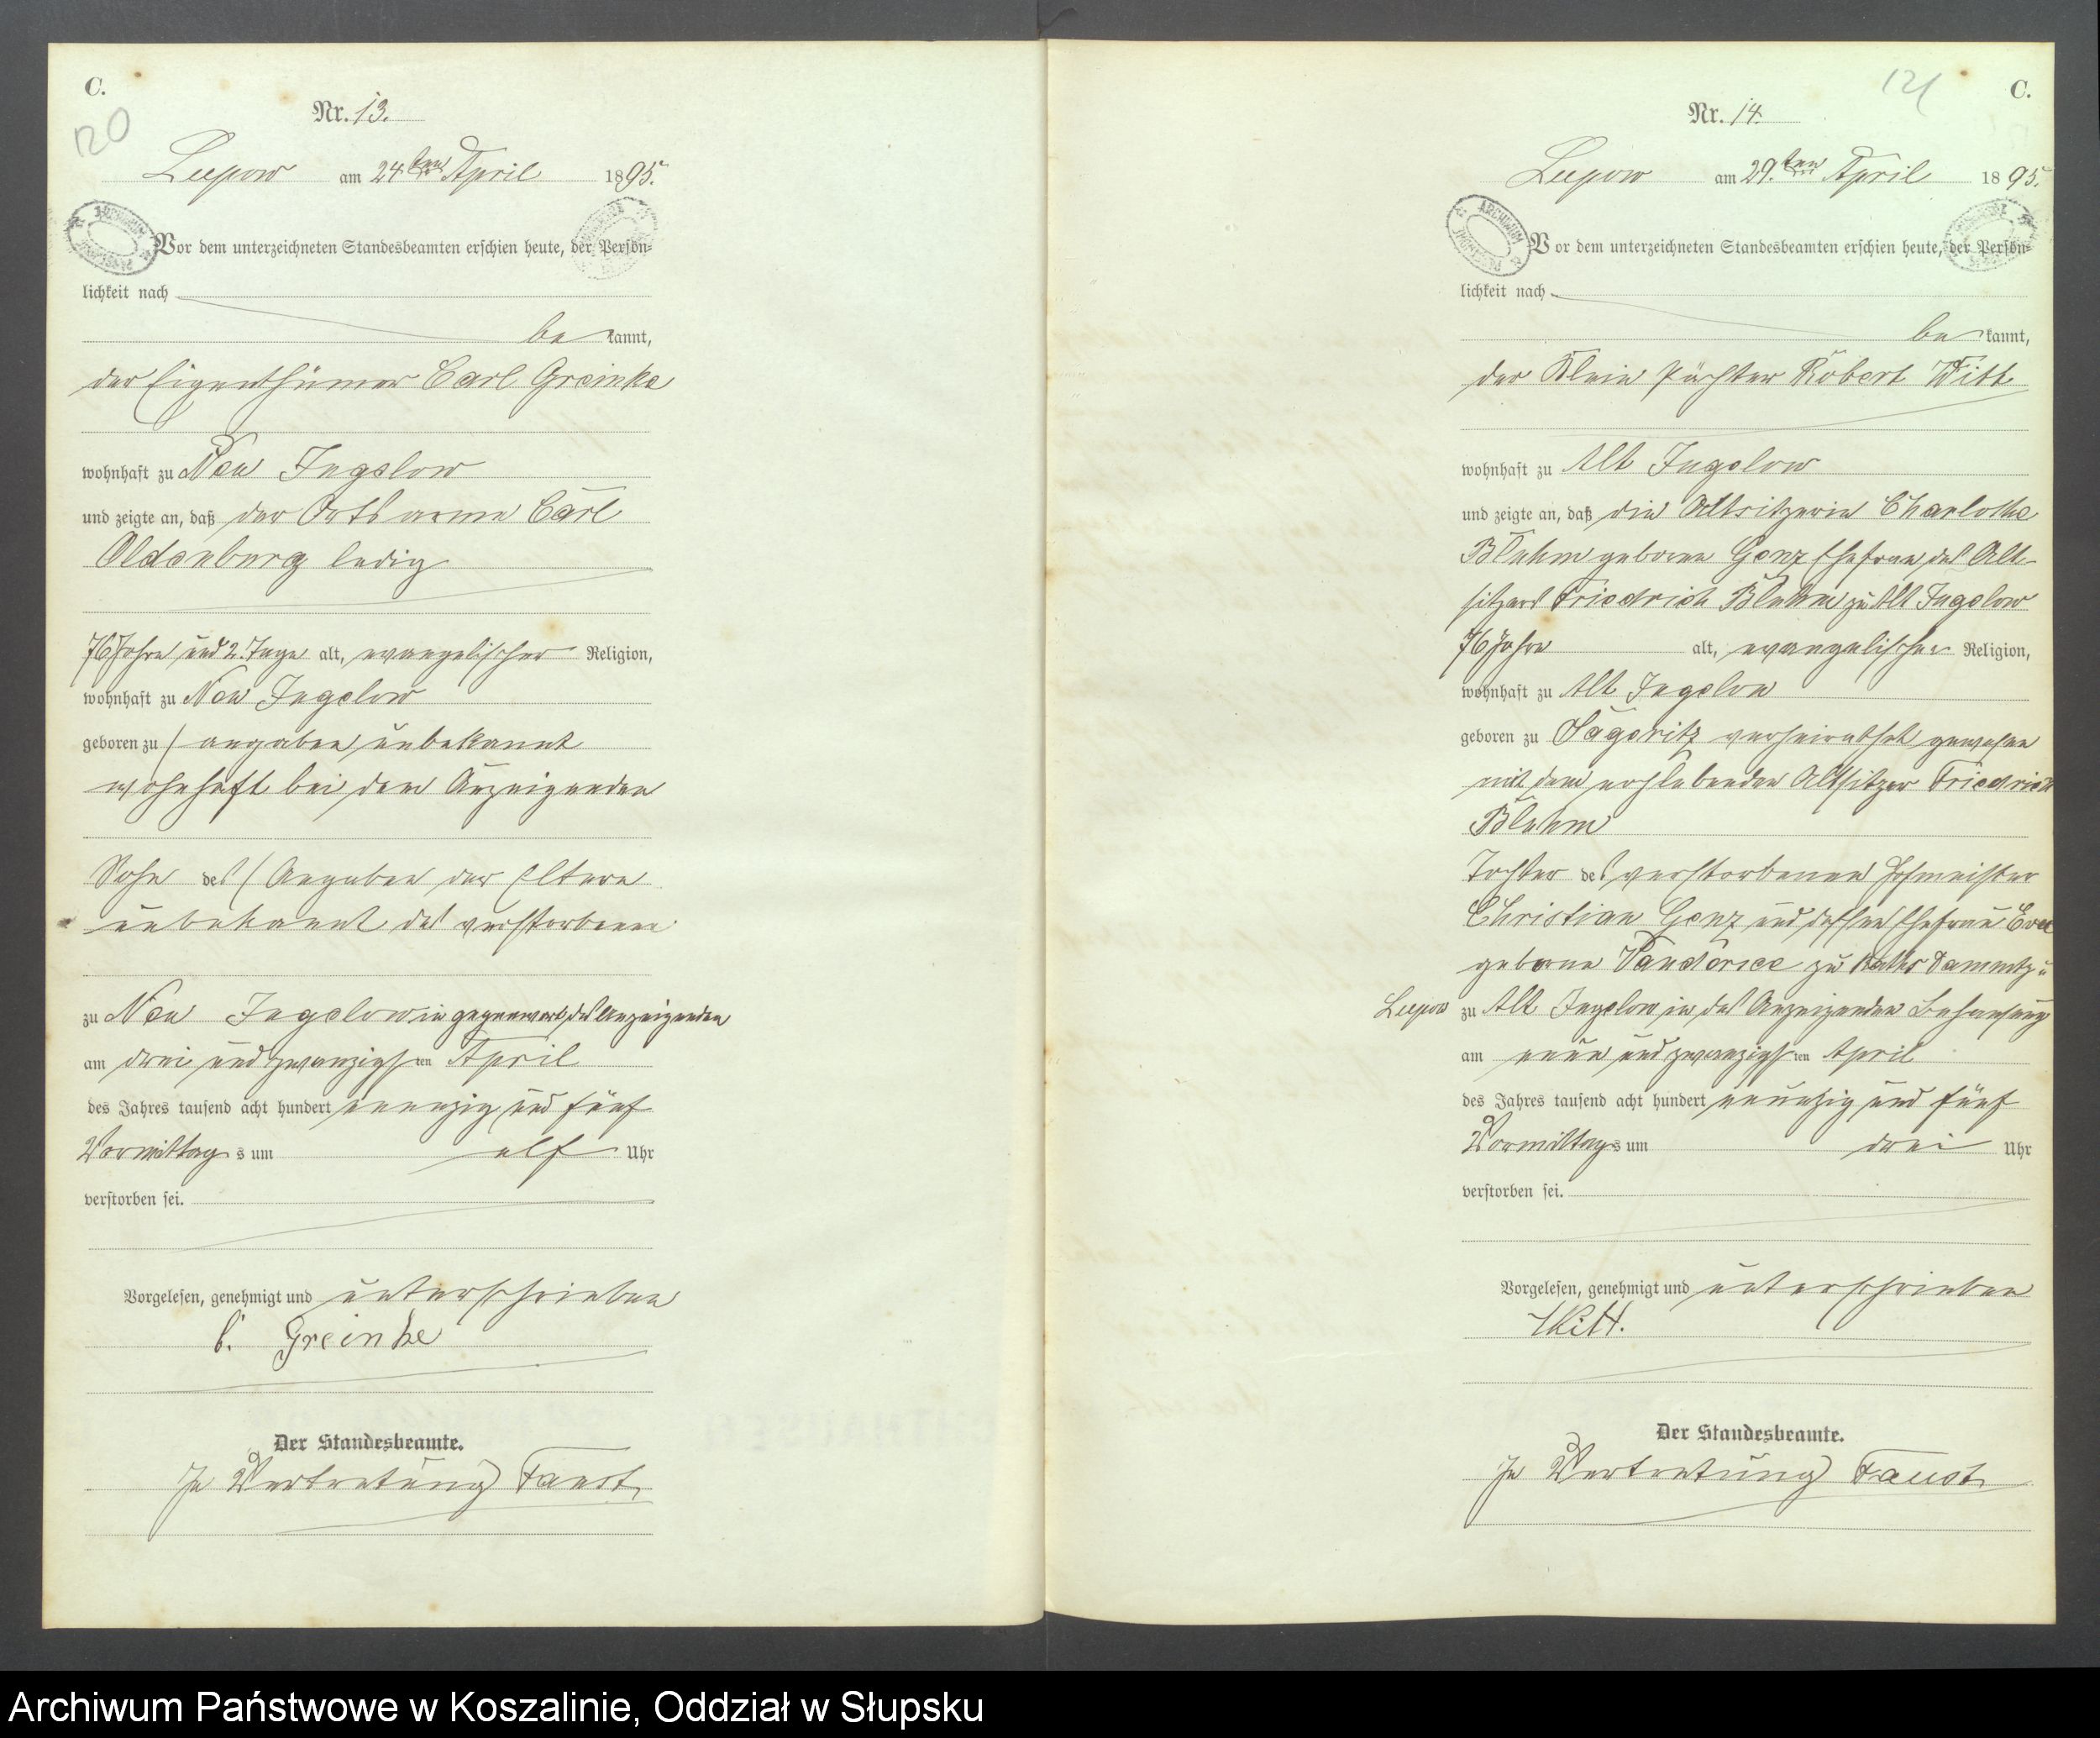 C.
120
Nr. 13.
Lupow am 24ten April 1895.
Vor dem unterzeichneten Standesbeamten erschien heute, der Persön-
lichkeit nach
be kannt,
der Eigenthümer Carl Greinke
wohnhaft zu Neu Jugelow
und zeigte an, daß der Ortsarme Carl
Oldenburg ledig
76 Jahre und 2. Tage alt, evangelischer Religion,
wohnhaft zu Neu Jugelow
geboren zu / angaben unbekannt
wohnhaft bei dem Anzeigenden
Sohn des / Angaben der Eltern
unbekannt des verstorbenen
zu Neu Jugelow in gegenwart des Anzeigenden
am drei und zwanzigsten April
des Jahres tausend acht hundert neunzig und fünf
Vormittags um elf Uhr
verstorben sei.
Vorgelesen, genehmigt und unterschrieben
C. Greinke
Der Standesbeamte.
In Vertretung Faust
121
C.
Nr. 14.
Lupow am 29.ten April 1895.
Vor dem unterzeichneten Standesbeamten erschien heute, der Persön-
lichkeit nach
be kannt,
der Klein Pächter Robert Witt
wohnhaft zu Alt Jugelow
und zeigte an, daß die Altsitzerin Charlotte
Bluhm geborne Genz Ehefrau des Alt-
sitzers Friedrich Bluhm zu Alt Jugelow
76 Jahre alt, evangelischer Religion,
wohnhaft zu Alt Jugelow
geboren zu Sageritz verheirathet gewesen
mit dem noch lebenden Altsitzer Friedrich
Bluhm
Tochter des verstorbenen Hofmeister
Christian Genz und dessen Ehefrau Eva
geborne zu Raths Damnitz u
Lupow zu Alt Jugelow in des Anzeigenden Behausung
am neun und zwanzigsten April
des Jahres tausend acht hundert neunzig und fünf
Vormittags um drei Uhr
verstorben sei.
Vorgelesen, genehmigt und unterschrieben
Witt.
Der Standesbeamte.
In Vertretung Faust
Archiwum Państwowe w Koszalinie, Oddział w Słupsku